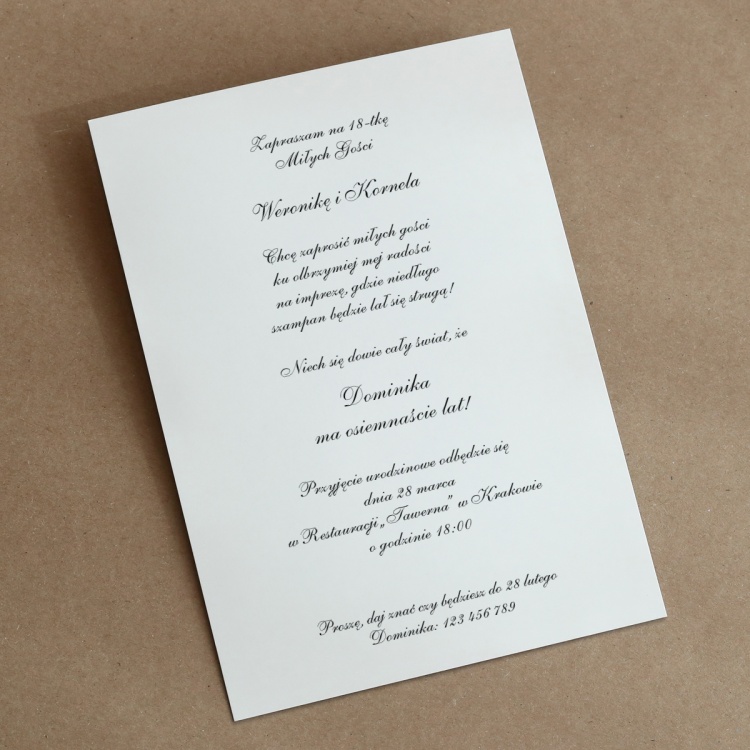 Zapraszam na 18-tkę
Miłych Gości
Weronikę i Kornela
Chcę zaprosić miłych gości
ku olbrzymiej mej radości
na imprezę, gdzie niedługo
szampan będzie lał się strugą!
Niech się dowie cały świat, że
Dominika
ma osiemnaście lat!
Przyjęcie urodzinowe odbędzie się
dnia 28 marca
w Restauracji „Tawerna” w Krakowie
o godzinie 18:00
Proszę, daj znać czy będziesz do 28 lutego
Dominika: 123 456 789